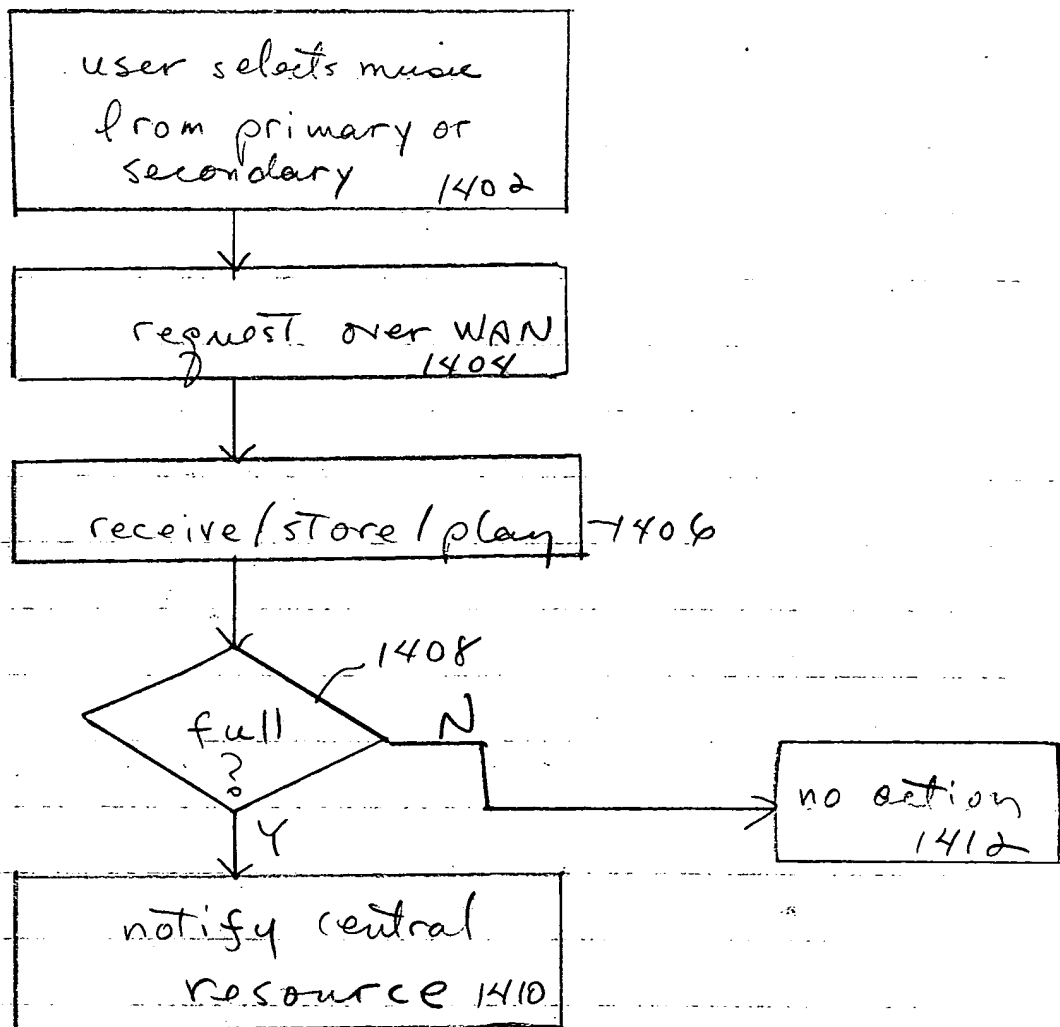 user selects music
from primary or
secondary 1402
request over WAN
1404
receive/store/play 1406
1408
full
?
N
Y
no action
1412
notify central
resource 1410